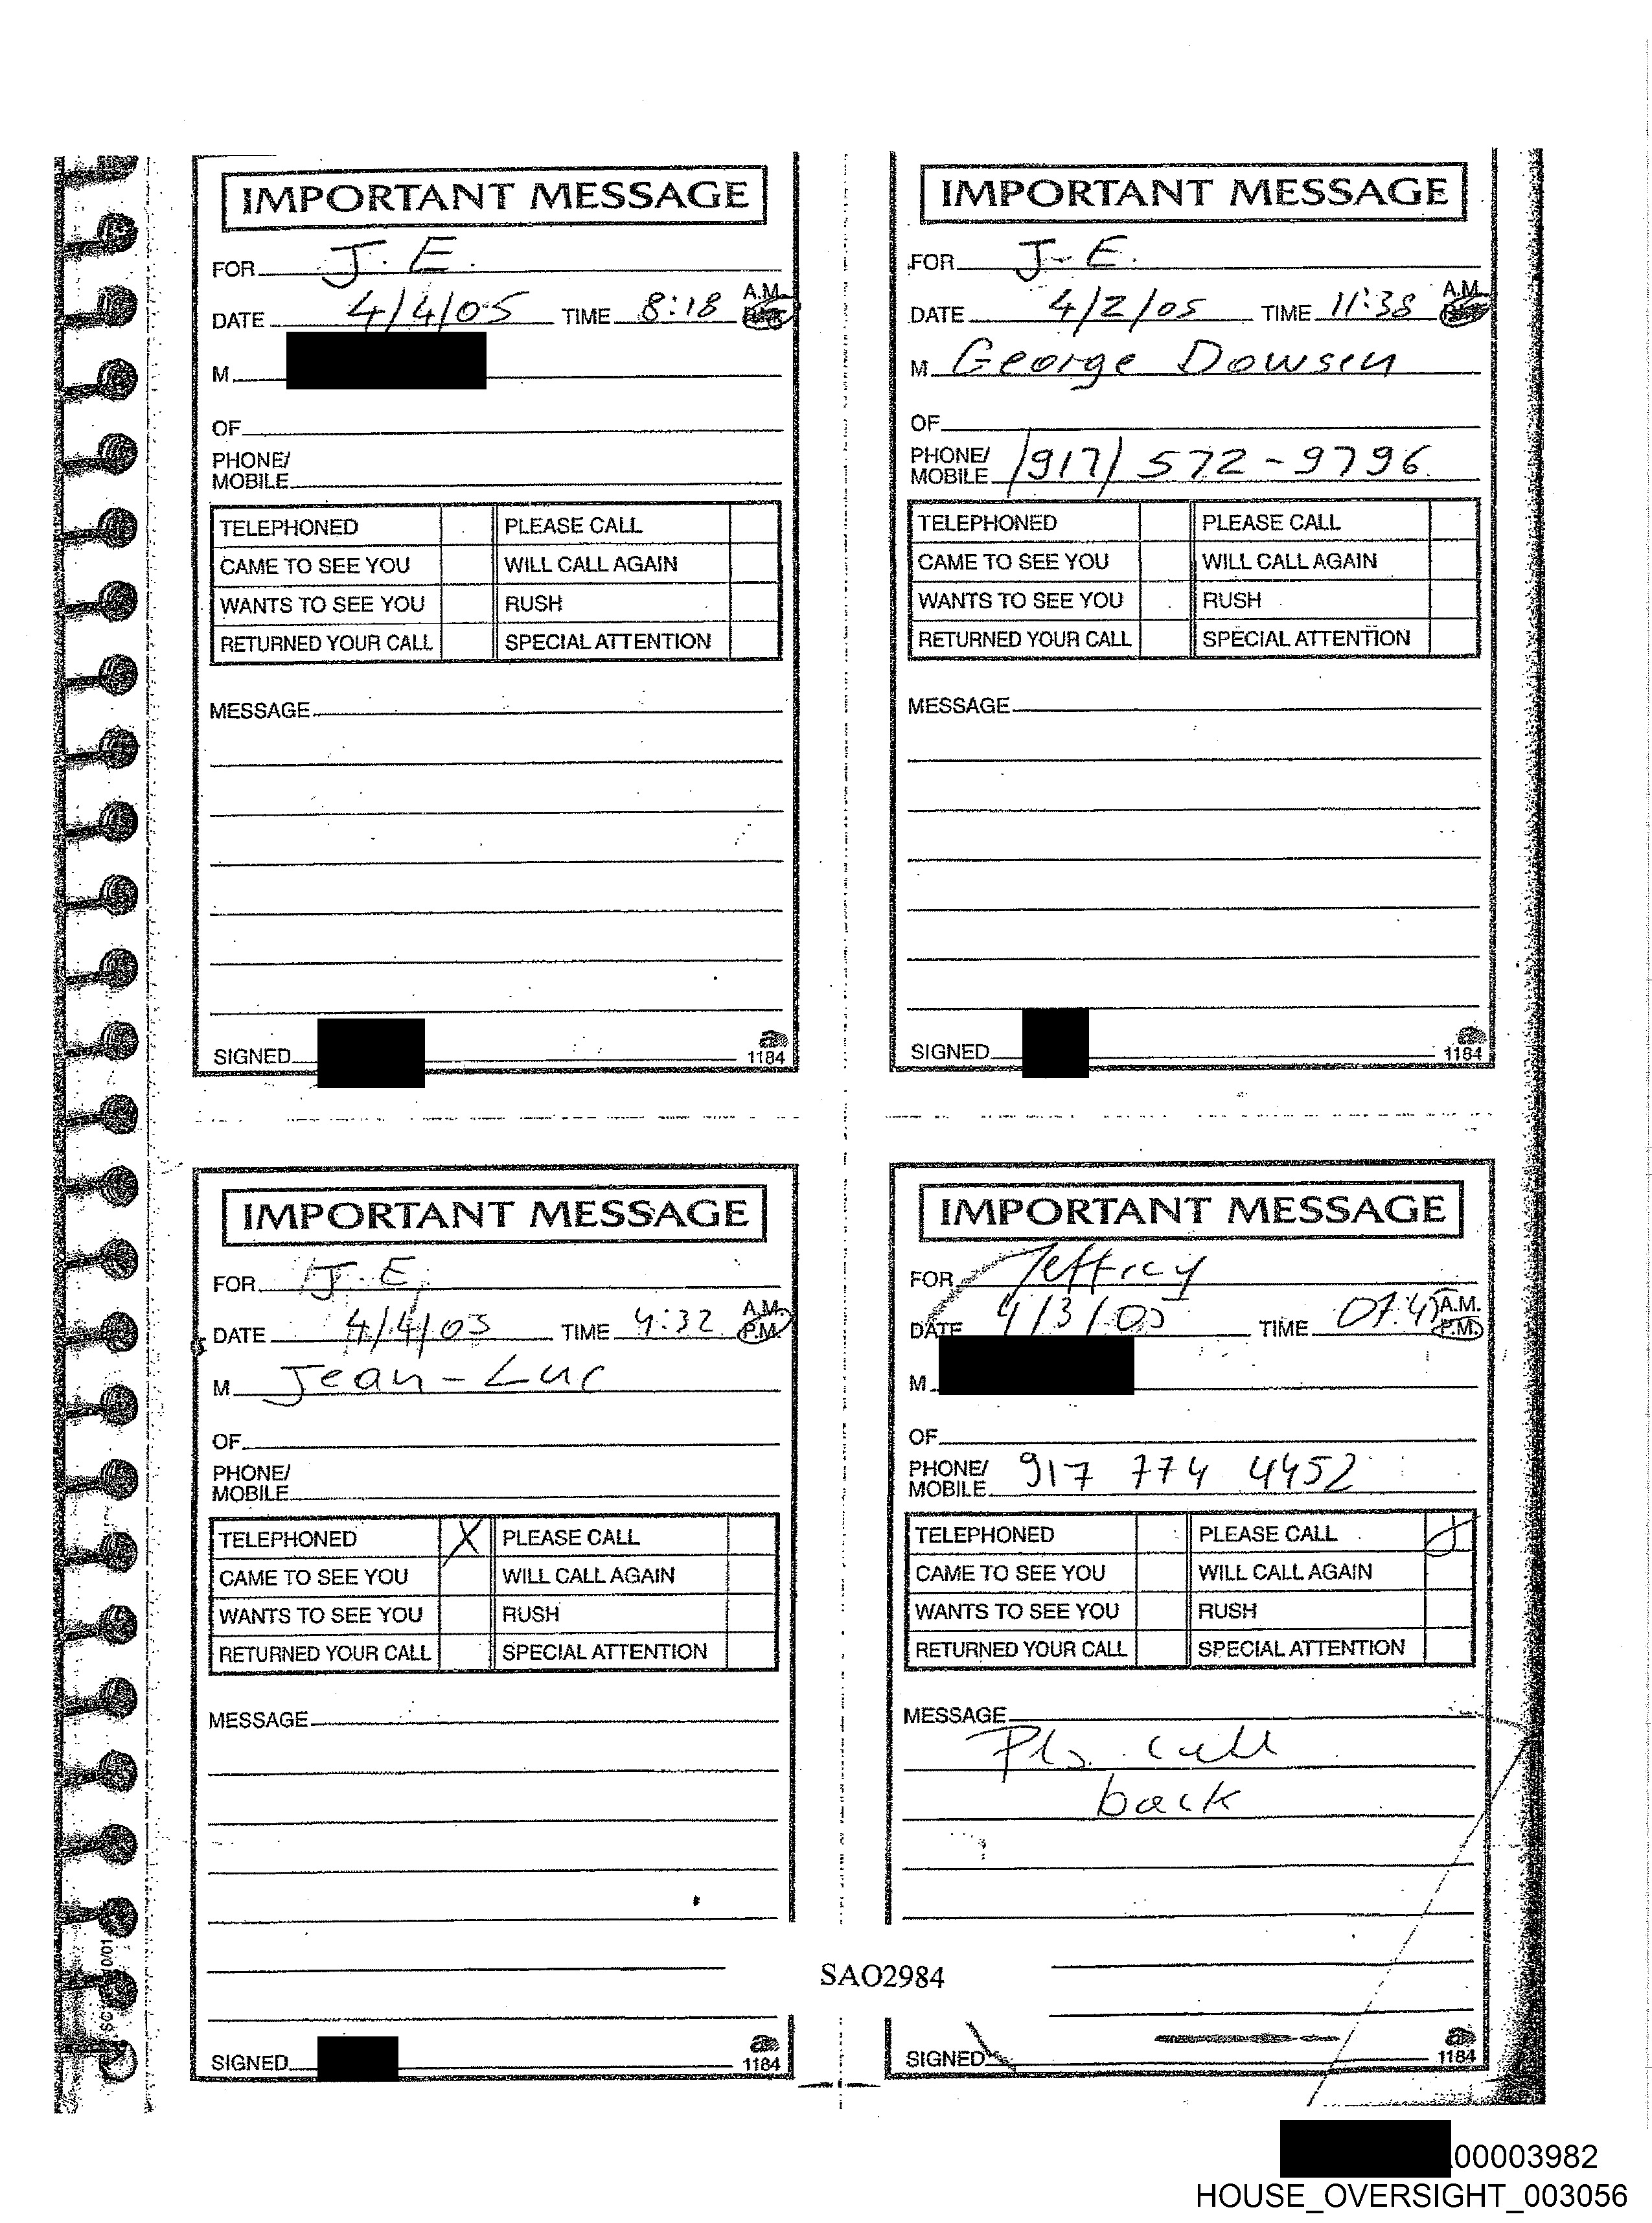 IMPORTANT MESSAGE
FOR J. E.
DATE 4/4/05 TIME 8:18 A.M.
M
OF
PHONE/
MOBILE
TELEPHONED PLEASE CALL
CAME TO SEE YOU WILL CALL AGAIN
WANTS TO SEE YOU RUSH
RETURNED YOUR CALL SPECIAL ATTENTION
MESSAGE
SIGNED 1184
IMPORTANT MESSAGE
FOR J-E.
DATE 4/2/05 TIME 11:38 A.M.
M George Dowsen
OF
PHONE/
MOBILE /917/ 572-9796
TELEPHONED PLEASE CALL
CAME TO SEE YOU WILL CALL AGAIN
WANTS TO SEE YOU RUSH
RETURNED YOUR CALL SPECIAL ATTENTION
MESSAGE
SIGNED 1184
IMPORTANT MESSAGE
FOR J. E.
DATE 4/4/05 TIME 4:32 A.M.
P.M.
M Jean-Luc
OF
PHONE/
MOBILE
TELEPHONED X PLEASE CALL
CAME TO SEE YOU WILL CALL AGAIN
WANTS TO SEE YOU RUSH
RETURNED YOUR CALL SPECIAL ATTENTION
MESSAGE
SIGNED 1184
IMPORTANT MESSAGE
FOR Jeffrey
DATE 4/3/05 TIME A.M.
P.M.
M
OF
PHONE/
MOBILE 917 774 4452
TELEPHONED PLEASE CALL
CAME TO SEE YOU WILL CALL AGAIN
WANTS TO SEE YOU RUSH
RETURNED YOUR CALL SPECIAL ATTENTION
MESSAGE
Pls. call
back
SIGNED 1184
SAO2984
00003982
HOUSE_OVERSIGHT_003056